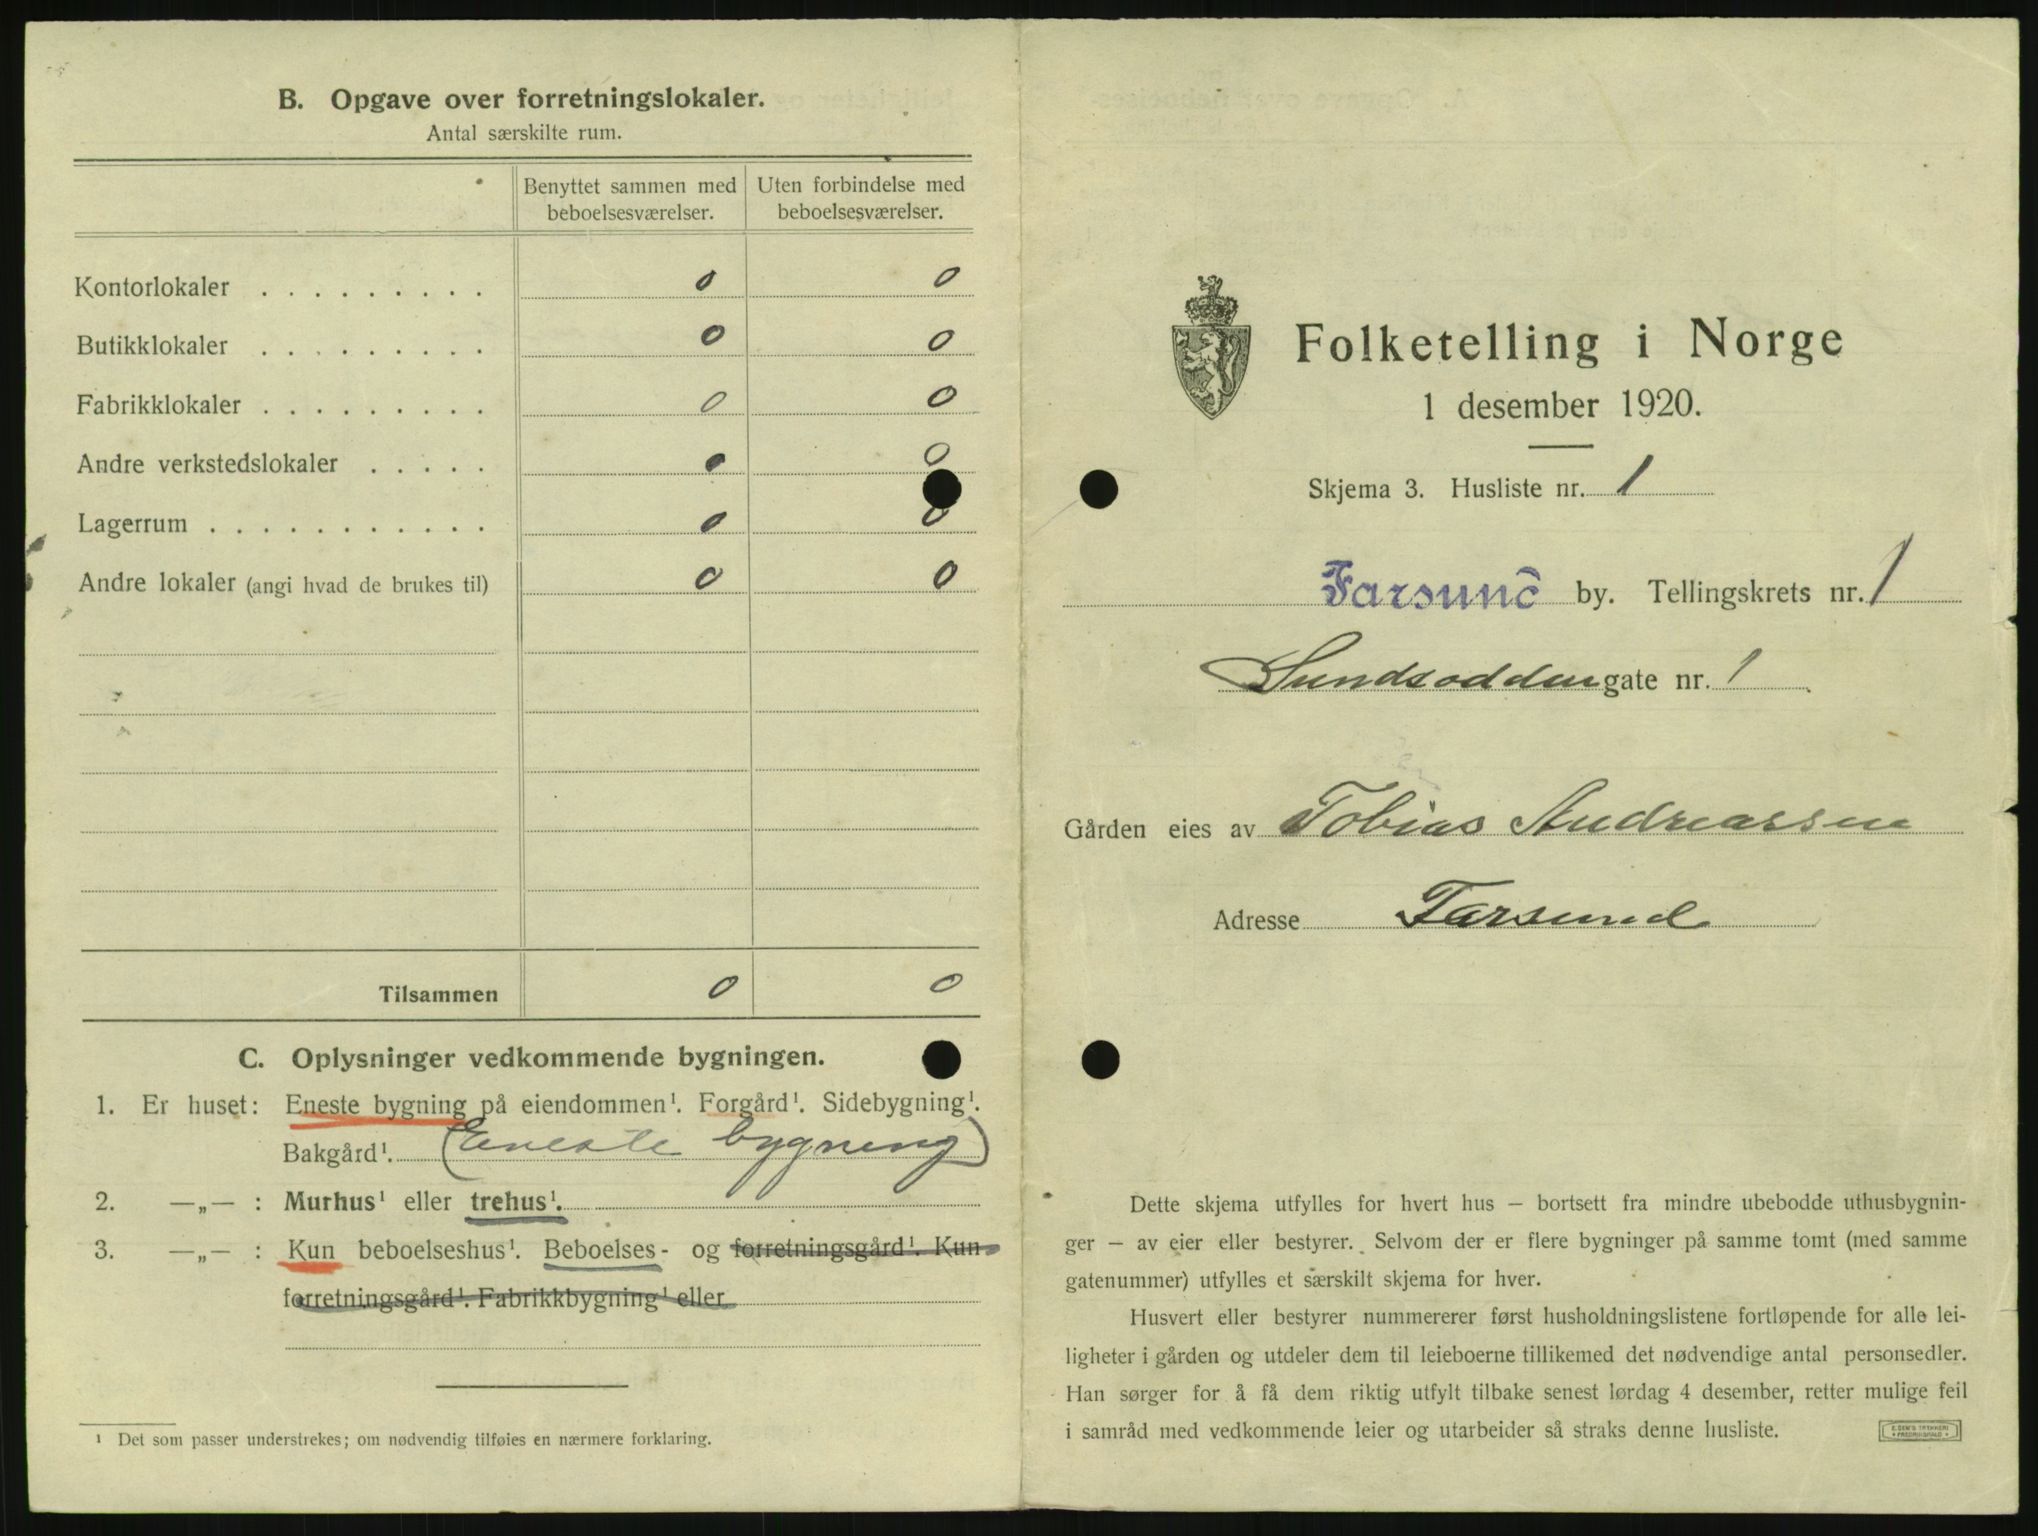 B. Opgave over forretningslokaler.
Antal særskilte rum.
Benyttet sammen med beboelsesværelser.
Uten forbindelse med beboelsesværelser.
Kontorlokaler . . . . . . . . . 0 0
Butikklokaler . . . . . . . . . 0 0
Fabrikklokaler . . . . . . . . . 0 0
Andre verkstedslokaler . . . . . 0 0
Lagerrum . . . . . . . . . . . 0 0
Andre lokaler (angi hvad de brukes til) 0 0
Tilsammen 0 0
C. Oplysninger vedkommende bygningen.
1. Er huset: Eneste bygning på eiendommen¹. Forgård¹. Sidebygning¹.
Bakgård¹. (Eneste bygning)
2. —„— : Murhus¹ eller trehus¹.
3. —„— : Kun beboelseshus¹. Beboelses- og forretningsgård¹. Kun
forretningsgård¹. Fabrikkbygning¹ eller
¹ Det som passer understrekes; om nødvendig tilføies en nærmere forklaring.
Folketelling i Norge
1 desember 1920.
Skjema 3. Husliste nr. 1
Farsund by. Tellingskrets nr. 1
Sundsodden gate nr. 1
Gården eies av Tobias Andreassen
Adresse Farsund
Dette skjema utfylles for hvert hus – bortsett fra mindre ubebodde uthusbygnin-
ger – av eier eller bestyrer. Selvom der er flere bygninger på samme tomt (med samme
gatenummer) utfylles et særskilt skjema for hver.
Husvert eller bestyrer nummererer først husholdningslistene fortløpende for alle lei-
ligheter i gården og utdeler dem til leieboerne tillikemed det nødvendige antal personsedler.
Han sørger for å få dem riktig utfylt tilbake senest lørdag 4 desember, retter mulige feil
i samråd med vedkommende leier og utarbeider så straks denne husliste.